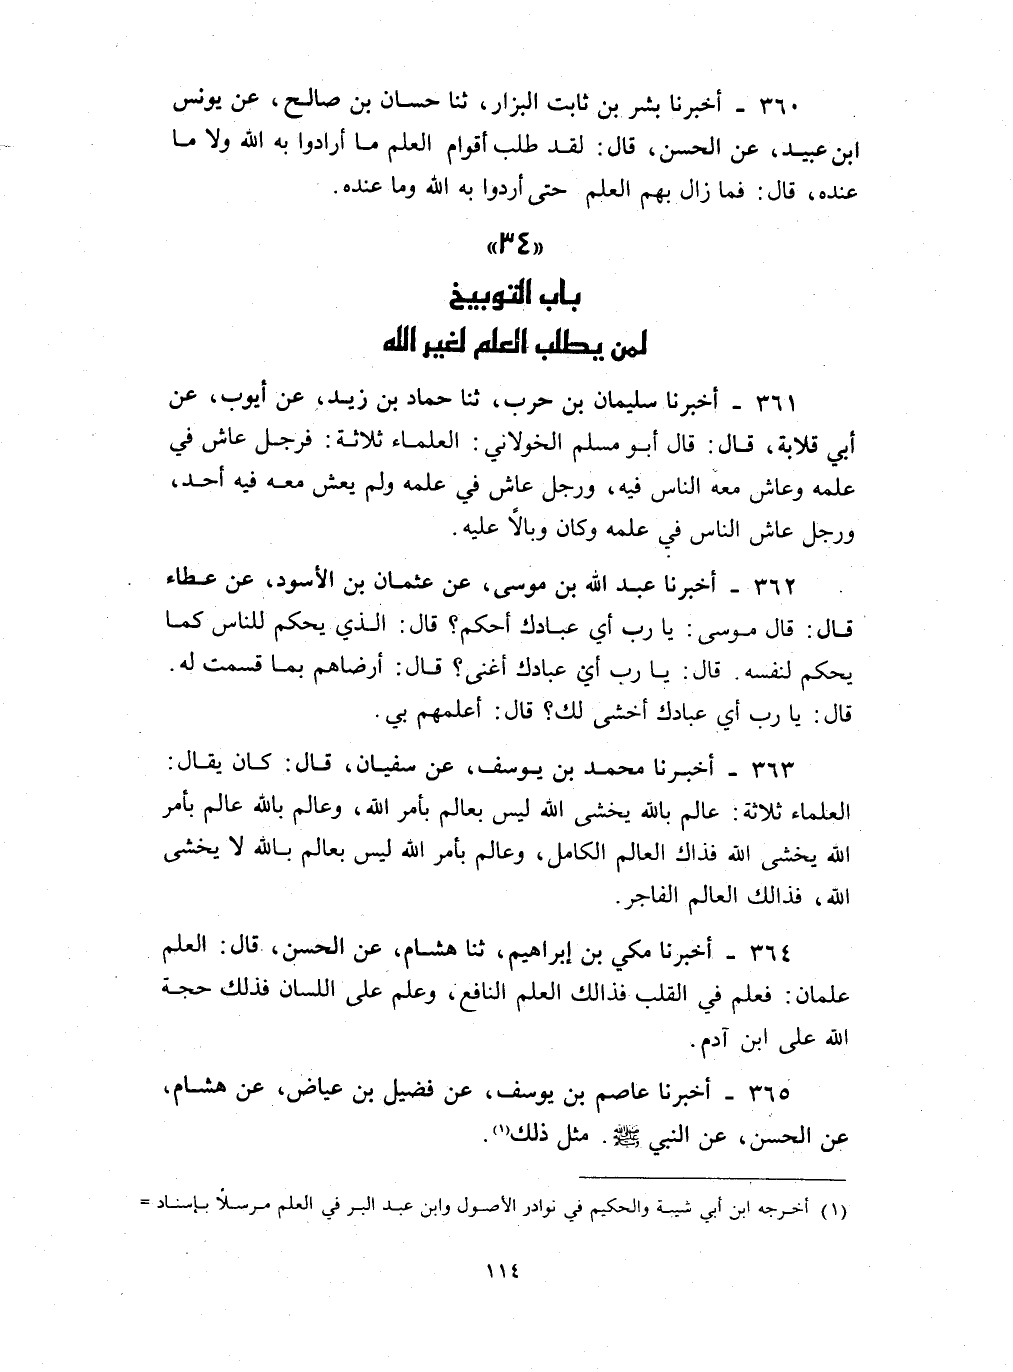 ٣٦٠ ـ أخبرنا بشر بن ثابت البزار، ثنا حسان بن صالح، عن يونس
ابن عبيد، عن الحسن، قال: لقد طلب أقوام العلم ما أرادوا به الله ولا ما
عنده، قال: فما زال بهم العلم حتى أردوا به الله وما عنده.
«٣٤»
باب التوبيخ
لمن يطلب العلم لغير الله
٣٦١ ـ أخبرنا سليمان بن حرب، ثنا حماد بن زيد، عن أيوب، عن
أبي قلابة، قال: قال أبو مسلم الخولاني: العلماء ثلاثة: فرجل عاش في
علمه وعاش معه الناس فيه، ورجل عاش في علمه ولم يعش معه فيه أحد،
ورجل عاش الناس في علمه وكان وبالًا عليه.
٣٦٢ ـ أخبرنا عبد الله بن موسى، عن عثمان بن الأسود، عن عطاء
قال: قال موسى: يا رب أي عبادك أحكم؟ قال: الذي يحكم للناس كما
يحكم لنفسه. قال: يا رب أي عبادك أغنى؟ قال: أرضاهم بما قسمت له.
قال: يا رب أي عبادك أخشى لك؟ قال: أعلمهم بي.
٣٦٣ ـ أخبرنا محمد بن يوسف، عن سفيان، قال: كان يقال:
العلماء ثلاثة: عالم بالله يخشى الله ليس بعالم بأمر الله، وعالم بالله عالم بأمر
الله يخشى الله فذاك العالم الكامل، وعالم بأمر الله ليس بعالم بالله لا يخشى
الله، فذالك العالم الفاجر.
٣٦٤ ـ أخبرنا مكي بن إبراهيم، ثنا هشام، عن الحسن، قال: العلم
علمان: فعلم في القلب فذالك العلم النافع، وعلم على اللسان فذلك حجة
الله على ابن آدم.
٣٦٥ ـ أخبرنا عاصم بن يوسف، عن فضيل بن عياض، عن هشام،
عن الحسن، عن النبي ﷺ. مثل ذلك(١).
(١) أخرجه ابن أبي شيبة والحكيم في نوادر الأصول وابن عبد البر في العلم مرسلًا بإسناد =
١١٤